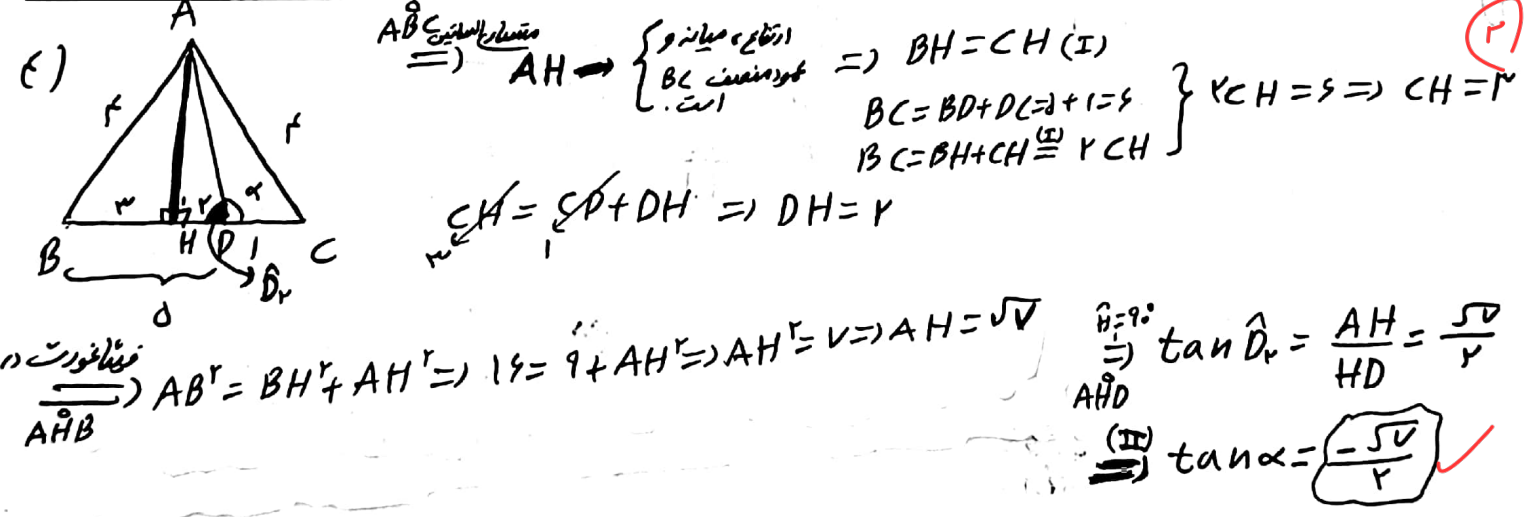 ۴)
A
۴
۴
۳
۲
α
B
H
D
۱
C
۵
D̂۲
ABC متساوی‌الساقین ⇒ AH → { ارتفاع، میانه و عمودمنصف BC است. ⇒ BH = CH (I)
BC = BD + DC = ۵ + ۱ = ۶
BC = BH + CH (I)= ۲CH } ۲CH = ۶ ⇒ CH = ۳
۲
CH = CD + DH ⇒ DH = ۲
۳
۱
فیثاغورث در AHB ⇒ AB² = BH² + AH² ⇒ ۱۶ = ۹ + AH² ⇒ AH² = ۷ ⇒ AH = √۷
Ĥ = ۹۰° ⇒ AHD tan D̂۲ = AH/HD = √۷/۲
(II) ⇒ tan α = -√۷/۲